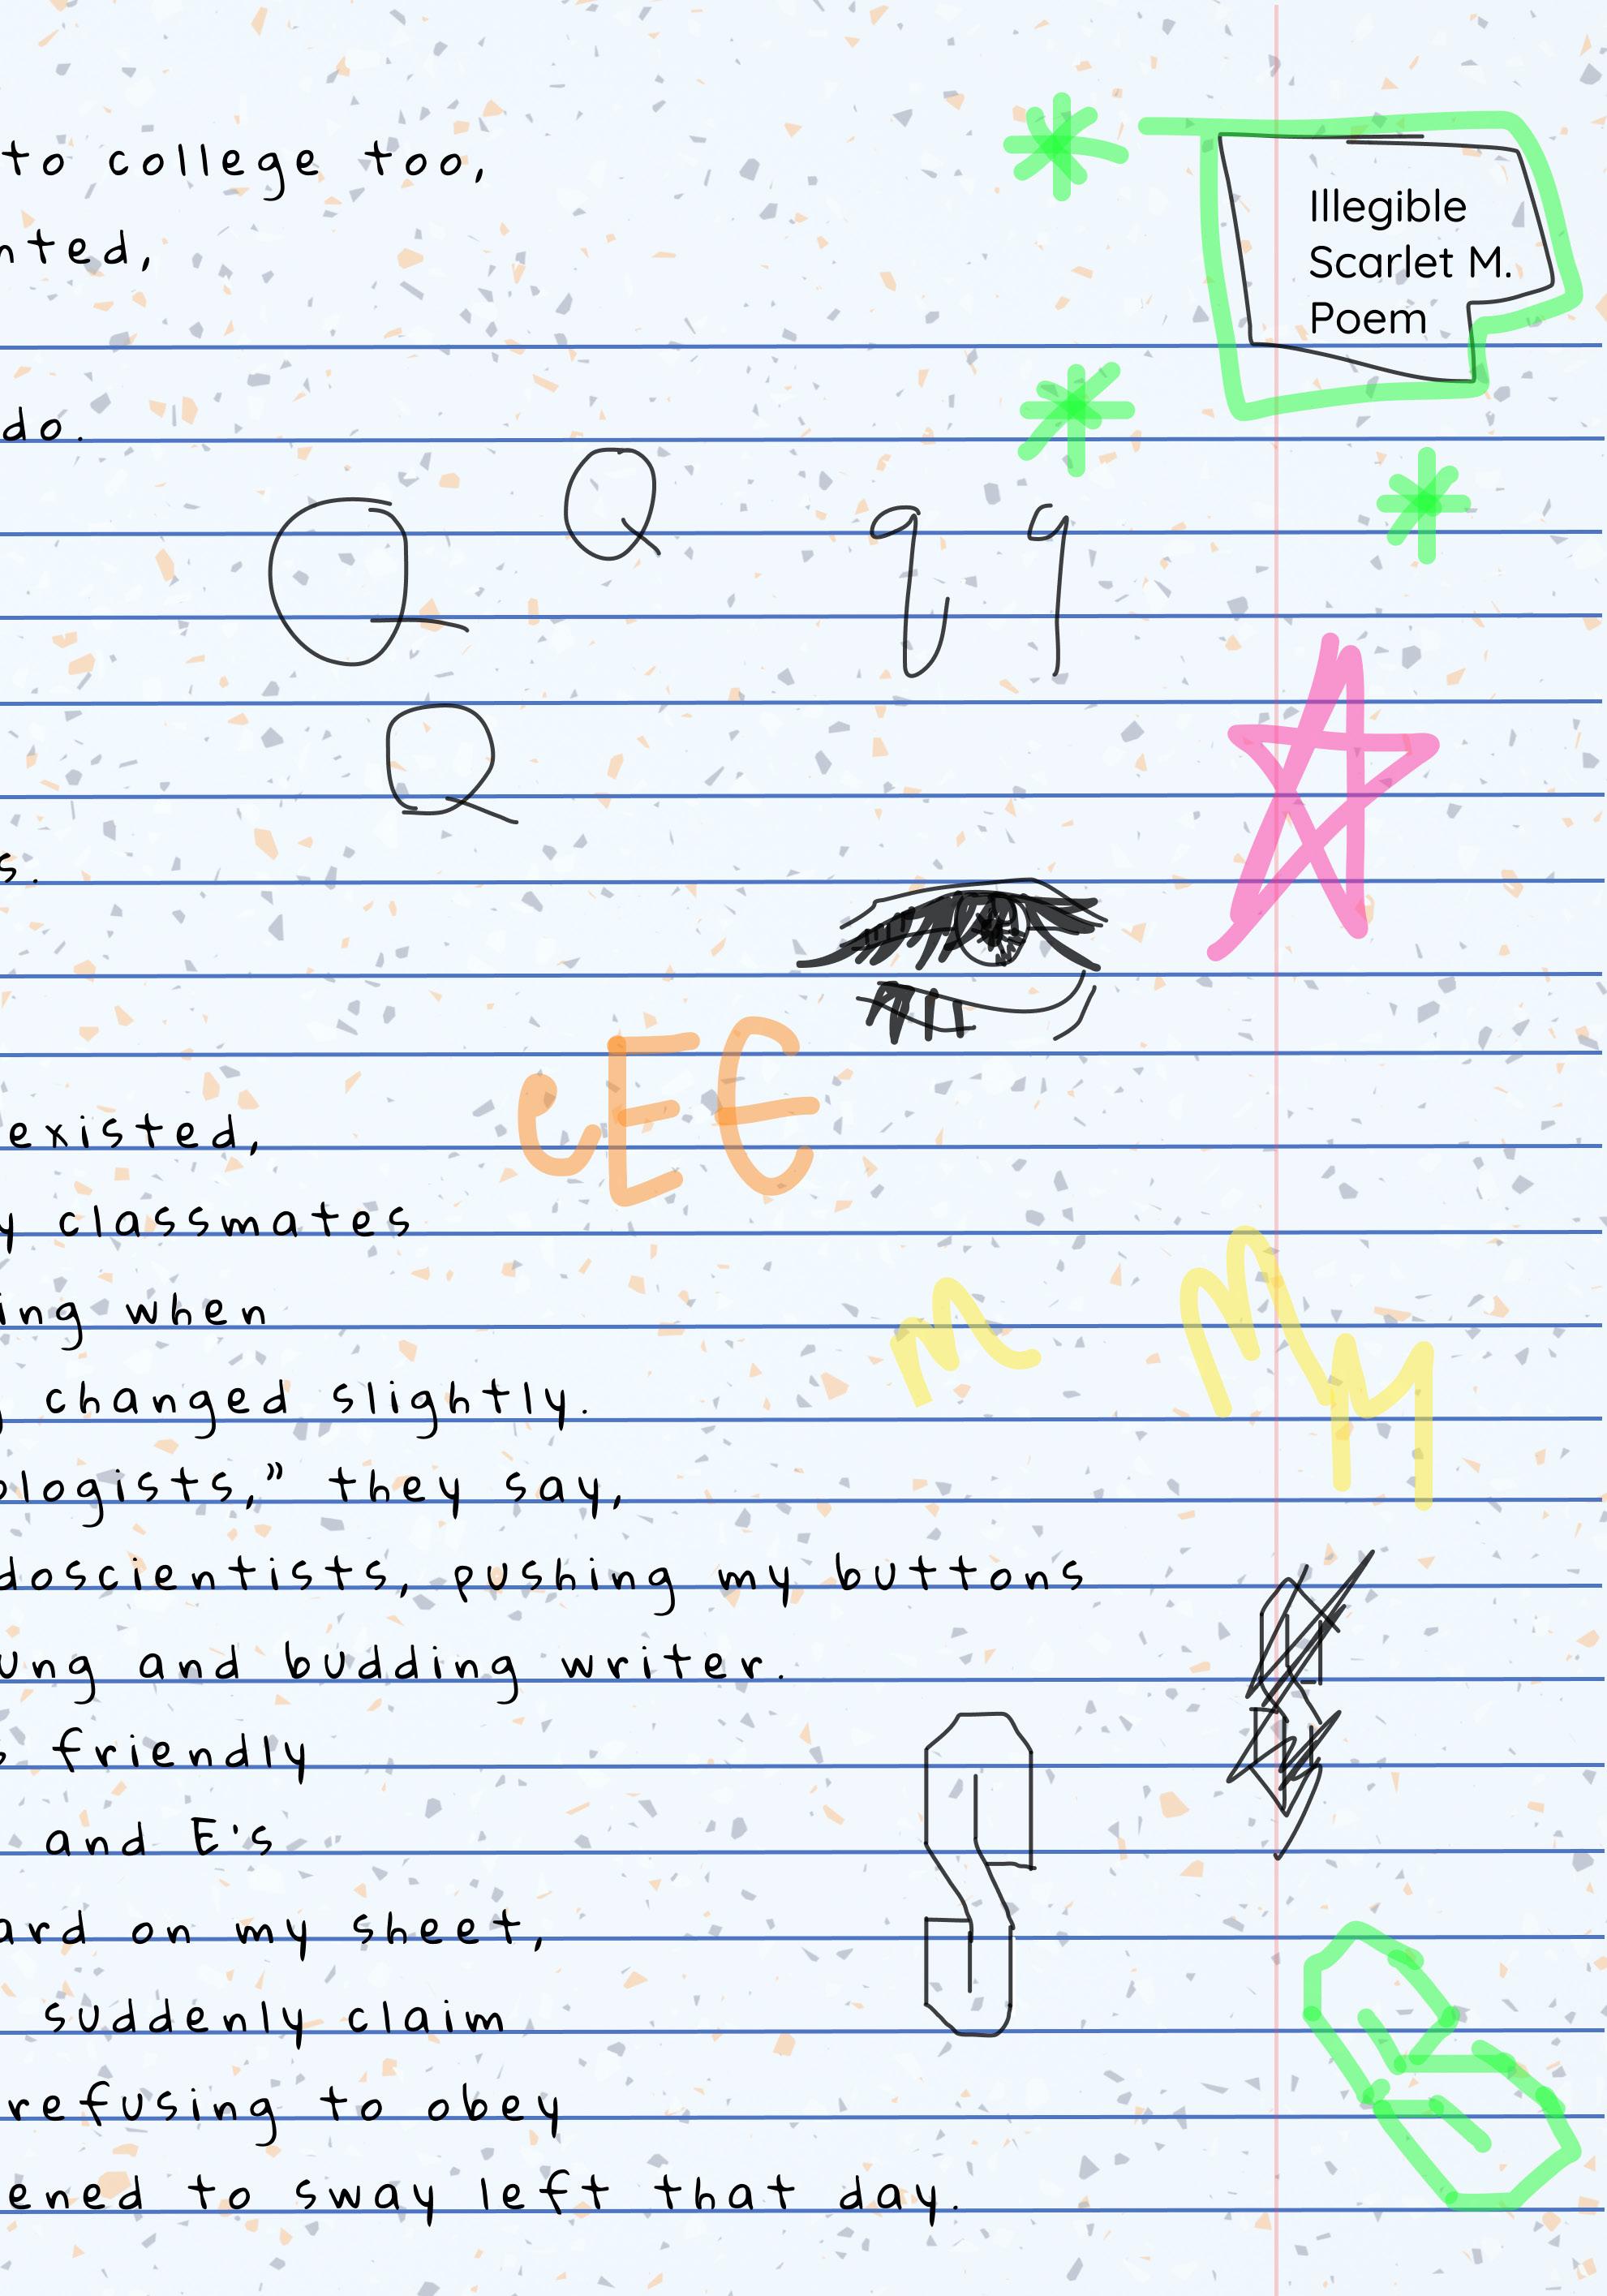 to college too,
nted,
Illegible
Scarlet M.
Poem
do.
Q
Q
q q
Q
s.
eEE
existed,
y classmates
ing when
changed slightly.
ologists,” they say,
doscientists, pushing my buttons
ung and budding writer.
s friendly
and E's
ard on my sheet,
suddenly claim
refusing to obey
ened to sway left that day.
m M M
S
S